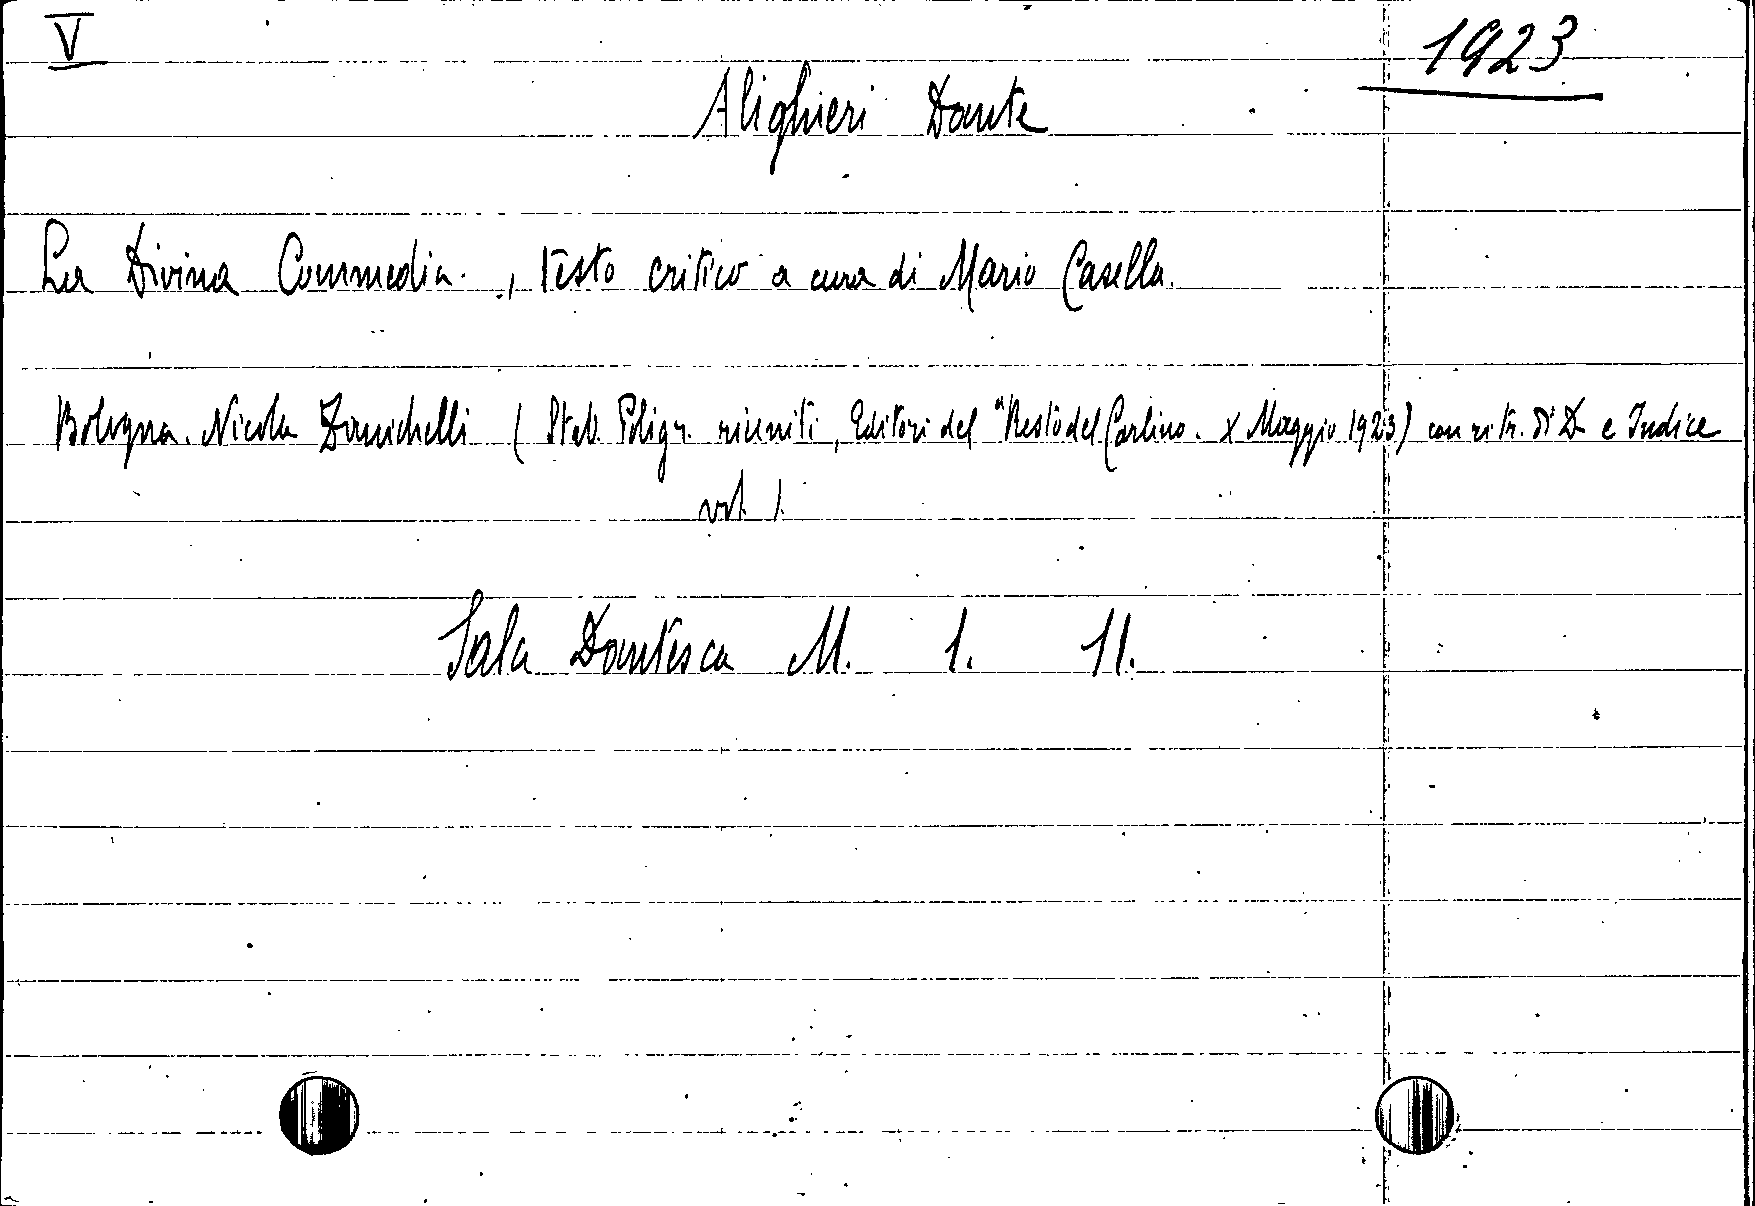 V
1923
Alighieri Dante
La Divina Commedia. , testo critico a cura di Mario Casella.
Bologna. Nicola Zanichelli ( Stab. Poligr. riuniti, Editori del "Resto del Carlino. X Maggio 1923) con ritr. di D. e Indice
vol. 1.
Sala Dantesca M. 1. 11.